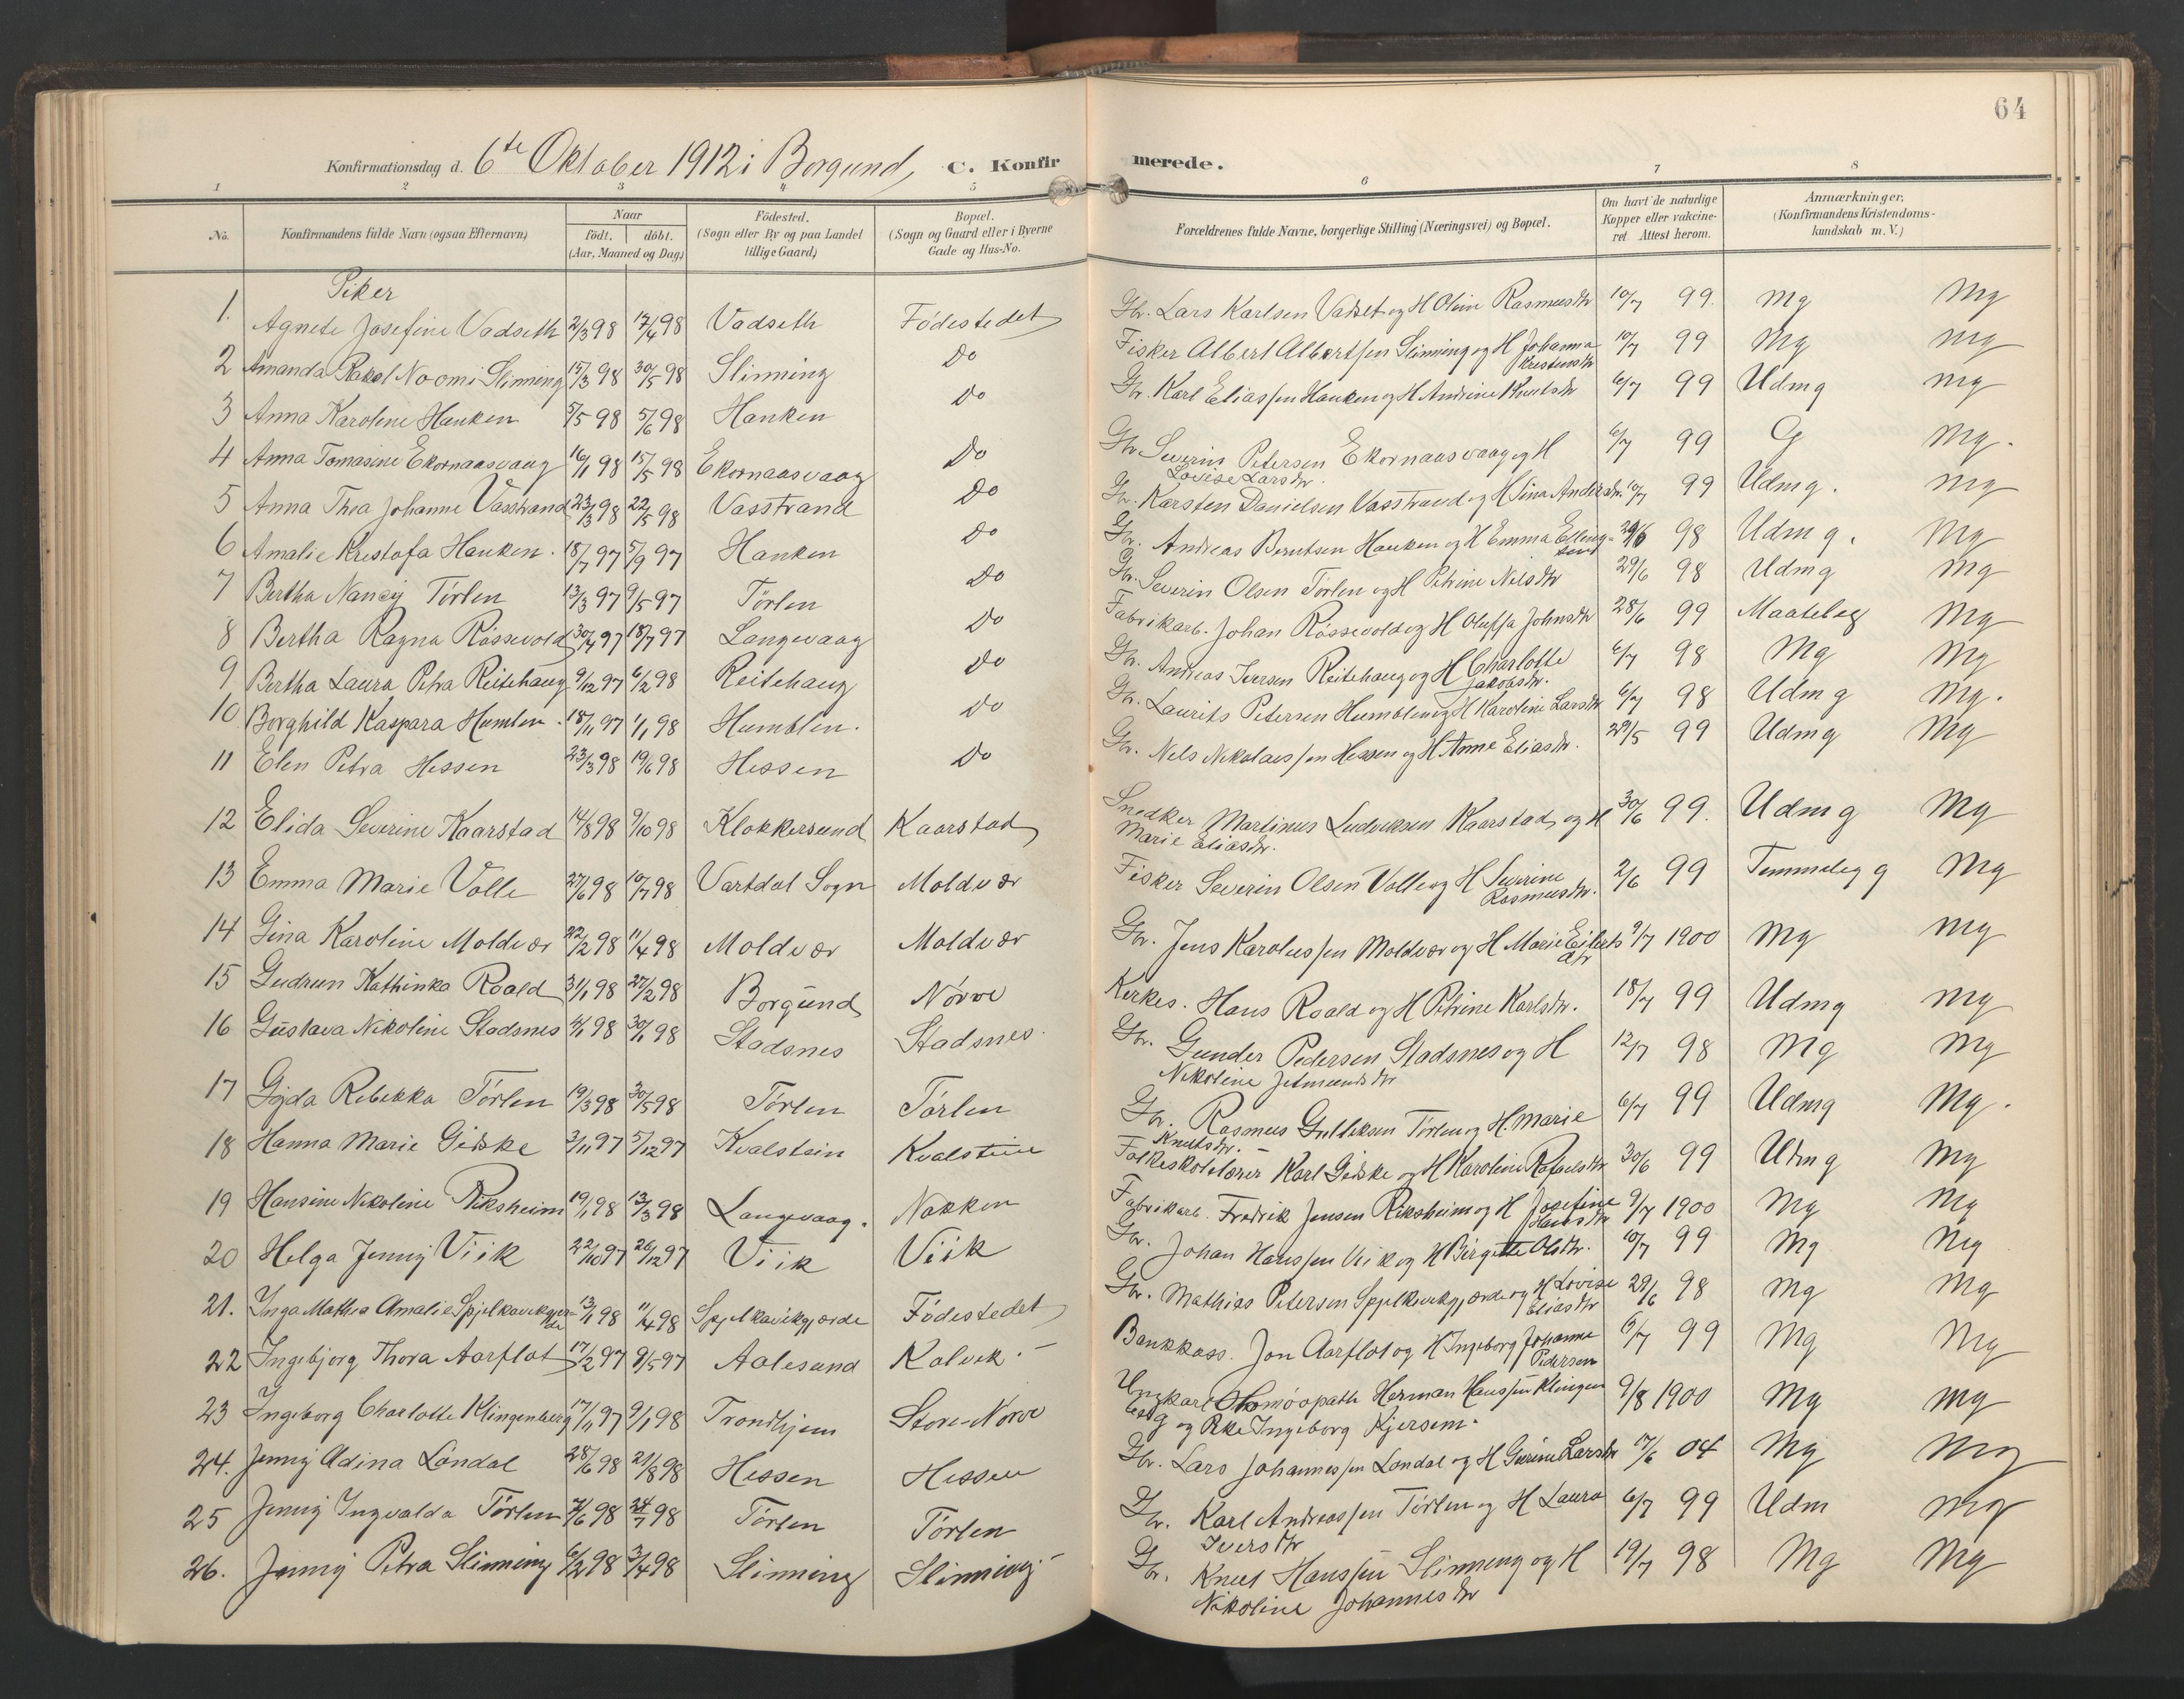 64
Konfirmationsdag d. 6te Oktober 1912 i Borgund, C. Konfirmerede.
1 2 3 4 5 6 7 8
No. Konfirmandens fulde Navn (ogsaa Efternavn) Naar födt. döbt. (Aar, Maaned og Dag) Födested. (Sogn eller By og paa Landet tillige Gaard) Bopæl. (Sogn og Gaard eller i Byerne Gade og Hus-No. Forældrenes fulde Navne, borgerlige Stilling (Næringsvei) og Bopæl. Om havt de naturlige Kopper eller vakcineret Attest herom. Anmærkninger, (Konfirmandens Kristendomskundskab m. V.)
Piker
1. Agnete Josefine Vadseth 2/3 98 17/4 98 Vadseth Fødestedet Gbr. Lars Karlsen Vadset og H Oline Rasmusdtr 10/7 99. Mg Mg
2 Amanda Rakel Noomi Slinning 15/3 98 30/5 98 Slinning Do Fisker Albert Albertsen Slinning og H Johanna Kristensdtr 10/7 99 Mg Mg
3 Anna Karoline Hanken 5/5 98 5/6 98 Hanken Do Gbr. Karl Eliassen Hanken og H Andrine Knutsdtr 6/7 99 Udmg Mg
4 Anna Tomasine Ekornaasvaag 16/1 98 15/5 98 Ekornaasvaag Do Gbr Severin Petersen Ekornaasvaag og H Lovise Larsdtr. 6/7 99 G Mg.
5 Anna Thea Johanne Vasstrand 23/3 98 22/5 98 Vasstrand Do Gbr. Karsten Danielsen Vasstrand og H Sina Andersdtr. 10/7 99 Udmg. Mg
6 Amalie Kristofa Hanken. 18/7 97 5/9 97 Hanken Do Gbr. Andreas Berntsen Hanken og H Emma Ellingsdtr 29/6 98 Udmg. Mg
7 Bertha Nancy Tørlen 13/3 97 9/5 97 Tørlen Do Gbr. Severin Olsen Tørlen og H Petrine Nilsdtr 29/6 98 Udmg Mg
8 Bertha Ragna Røssevold 30/4 97 18/7 97 Langevaag Do Fabrikarb. Johan Røssevold og H Oluffa Johnsdtr 28/6 99 Maatelag Mg
9 Bertha Laura Petra Reitehaug 9/12 97 6/2 98 Reitehaug Do Gbr. Andreas Iversen Reitehaug og H Charlotte Jakobsdtr. 6/7 98 Mg Mg
10 Borghild Kaspara Humlen. 18/11 97 1/1 98 Humblen. Do Gbr. Laurits Petersen Humblen og H Karoline Larsdtr 6/7 98 Udmg Mg.
11 Elen Petra Hessen 23/3 98 19/6 98 Hessen Do Gbr. Nils Nikolaissen Hessen og H Anne Eliasdtr. 29/5 99 Udmg Mg
12 Elida Severine Kaarstad 14/8 98 9/10 98 Klokkersund Kaarstad Snedker Martinus Ludviksen Kaarstad og H Marie Eliasdtr. 30/6 99. Udmg Mg
13 Emma Marie Volle 27/6 98 10/7 98 Vartdal Sogn Moldvær Fisker Severin Olsen Volle og H Severine Rasmusdtr. 2/6 99 Temmelig g Mg
14 Gina Karoline Moldvær 22/2 98 11/4 98 Moldvær Moldvær Gbr. Jens Karolussen Moldvær og H Marie Eilertsdtr 9/7 1900 Mg Mg
15 Gudrun Kathinka Roald 31/1 98 27/2 98 Borgund Nørve Kirkes. Hans Roald og H Petrine Karlsdtr. 18/7 99 Udmg Mg
16 Gustava Nikoline Stadsnes 4/1 98 30/1 98 Stadsnes Stadsnes. Gbr. Gunder Pedersen Stadsnes og H Nikoline Jetmundsdtr 12/7 98 Mg Mg
17 Gyda Rebekka Tørlen 19/3 98 30/5 98 Tørlen Tørlen Gbr. Rasmus Gulleksen Tørlen og H. Marie Knutsdtr. 6/7 99 Udmg Mg.
18 Hanna Marie Giske 3/11 97 5/12 97 Kvalstein Kvalstein Folkeskolelærer Karl Giske og H Karoline Rafaelsdtr 30/6 99 Udmg Mg
19 Hansine Nikoline Riksheim 19/1 98 13/3 98 Langevaag. Nakken Fabrikarb. Fredrik Jensen Riksheim og H Josefine Hansdtr 9/7 1900 Mg Mg
20 Helga Jenny Viik 22/10 97 26/12 97 Viik Viik Gbr. Johan Hanssen Viik og H Birgitte Olsdtr. 10/7 99 Mg Mg
21. Inga Mathea Amalie Spjelkavikgjærde 13/1 98 11/4 98 Spjelkavikgjærde Fødestedet Gbr. Mathias Petersen Spjelkavikgjærde og H Lovise Eliasdtr 29/6 98 Mg Mg
22 Ingebjorg Thora Aarflot 17/2 97 9/5 97 Aalesund Kalvik. Bankkass. Jon Aarflot og H Ingeborg Johanne Pedersen 6/7 99 Mg Mg
23 Ingeborg Charlotte Klingenberg 17/11 97 9/1 98 Trondhjem Store-Nørve Ungkarl Homøopath Herman Hanssen Klingenberg og Pke Ingeborg Kjersem. 9/8 1900 Mg Mg
24. Jenny Adina Løndal 28/6 98 21/8 98 Hessen Hessen Gbr. Lars Johannessen Løndal og H Gurine Larsdtr 17/6 04 Mg Mg
25 Jenny Ingvalda Tørlen 7/6 98 24/7 98 Tørlen Tørlen Gbr. Karl Andreassen Tørlen og H Laura Iversdtr 6/7 99 Udm Mg
26. Jenny Petra Slinning 6/2 98 3/4 98 Slinning Slinning Gbr. Knut Hanssen Slinning og H Nikoline Johannesdtr 19/7 98 Mg Mg